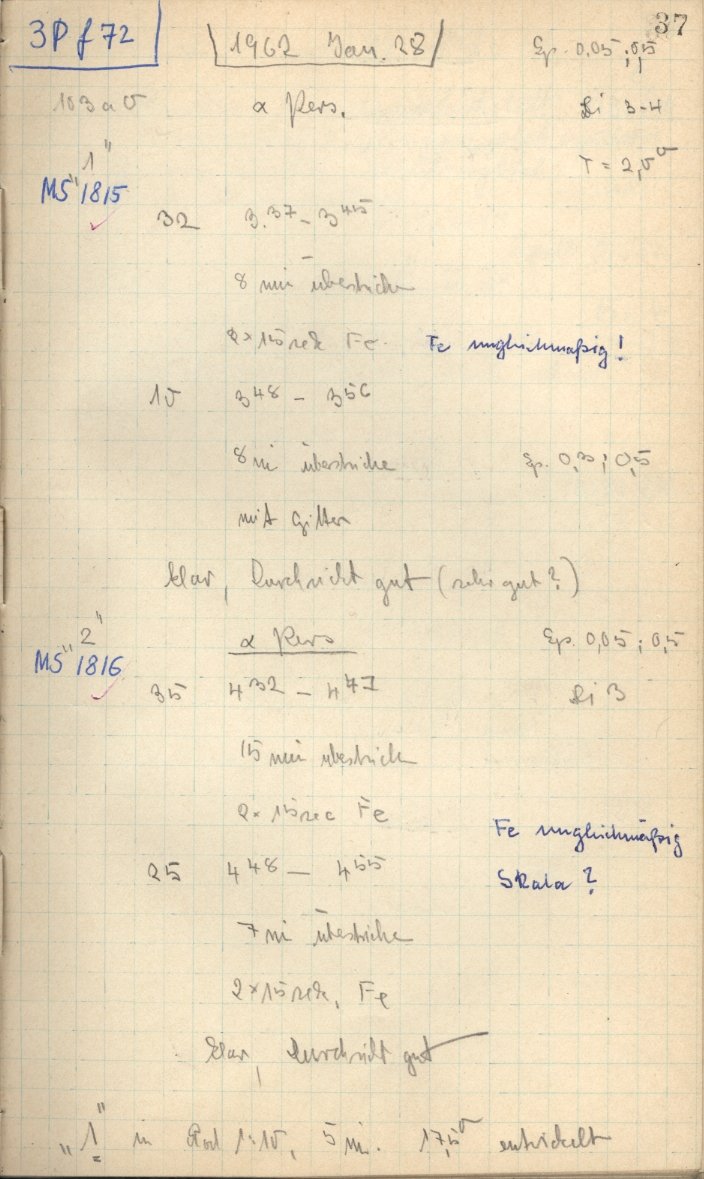 37
3Pf72 1962 Jan. 28 Sp. 0,05; 0,5
103aO α Pers. Li 3-4
"1" T = 2,0°
MS 1815
32 3.37 - 3 45
8 min überstrichen
2 × 15 sek Fe. Fe ungleichmäßig!
10 3 48 - 3 56
8 min überstrichen Sp. 0,3; 0,5
mit Gitter
klar, Durchsicht gut (sehr gut?)
"2" α Pers Sp. 0,05; 0,5
MS 1816
35 4 32 - 4 47 Li 3
15 min überstrichen
2 × 15 sec Fe
Fe ungleichmäßig
25 4 48 - 4 55 Skala?
7 min überstrichen
2 × 15 sek. Fe
klar, Durchsicht gut
"1" in Rod 1:10, 5 min. 17,5° entwickelt